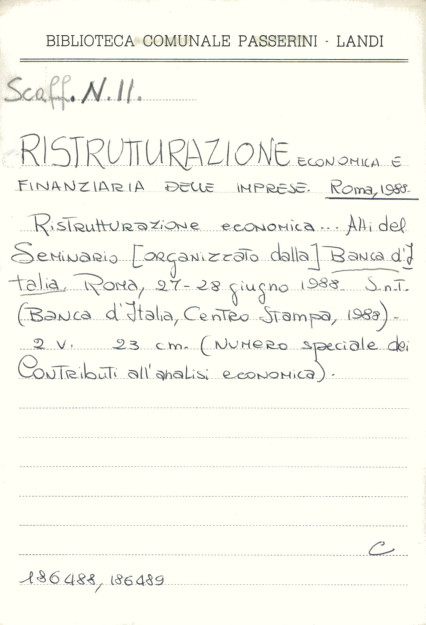 BIBLIOTECA COMUNALE PASSERINI - LANDI
Scaff. N. 11.
RISTRUTTURAZIONE ECONOMICA E
FINANZIARIA DELLE IMPRESE. Roma, 1988.
Ristrutturazione economica... Atti del
Seminario [organizzato dalla] Banca d'I
talia, Roma, 27-28 giugno 1988. S.n.t.
(Banca d'Italia, Centro Stampa, 1988).
2 v. 23 cm. (Numero speciale dei
Contributi all'analisi economica).
C
186488, 186489